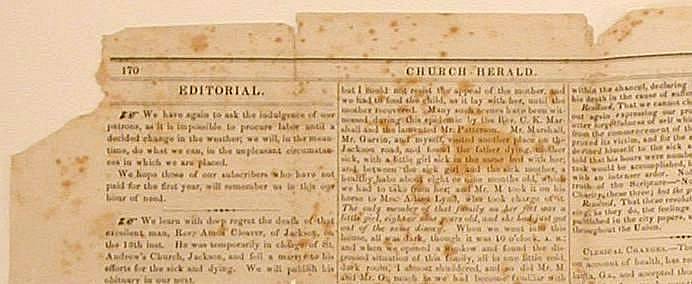 170
CHURCH HERALD.
EDITORIAL.
We have again to ask the indulgence of our
patrons, as it is impossible to procure labor until a
decided change in the weather; we will, in the mean-
time, do what we can, in the unpleasant circumstan-
ces in which we are placed.
We hope those of our subscribers who have not
paid for the first year, will remember us in this our
hour of need.
We learn with deep regret the death of that
excellent man, Rev. Amos Cleaver, of Jackson, on
the 13th inst. He was temporarily in charge of St.
Andrew's Church, Jackson, and fell a martyr to his
efforts for the sick and dying. We will publish his
obituary in our next.
but I could not resist the appeal of the mother, and
we had to feed the child, as it lay with her, until the
mother recovered. Many such scenes have been wit-
nessed during this epidemic by the Rev. C. K. Mar-
shall and the lamented Mr. Patterson. Mr. Marshall,
Mr. Garvin, and myself, visited another place on the
Jackson road, and found a father dying, a mother
sick, with a little girl sick in the same bed with her;
and between the sick girl and the sick mother, a
healthy babe about eight or nine months old, which
we had to take from her; and Mr. M took it on his
horse to Lynd, who took charge of it.
The only member of that family as yet left was a
little girl, eight or nine years old, and she had just got
out of the same disease. When we went into this
house, all was dark, though it was 10 o'clock, A. M.;
and when we opened a window and found the dis-
tressed situation of this family, all in one little cold,
dark room, I almost shuddered, and so did Mr. M
and Mr. G., much as we had become familiar with
within the chancel, declaring
his death in the cause of suffer
Resolved, That we cannot
out again expressing our
utter forgetfulness of self
from the commencement of
prized its victim, and for the
devoted himself to the sick a
told that his hours were
task would be accomplished,
with an intenser ardor.
truth of the Scriptures,
Charity, these three; but the
Resolved, That these resolu
ing, as they do, the feelings
published in the city papers,
throughout the Union.
CLERICAL CHANGES.—The
on account of health, has
lanta, Ga., and accepted the